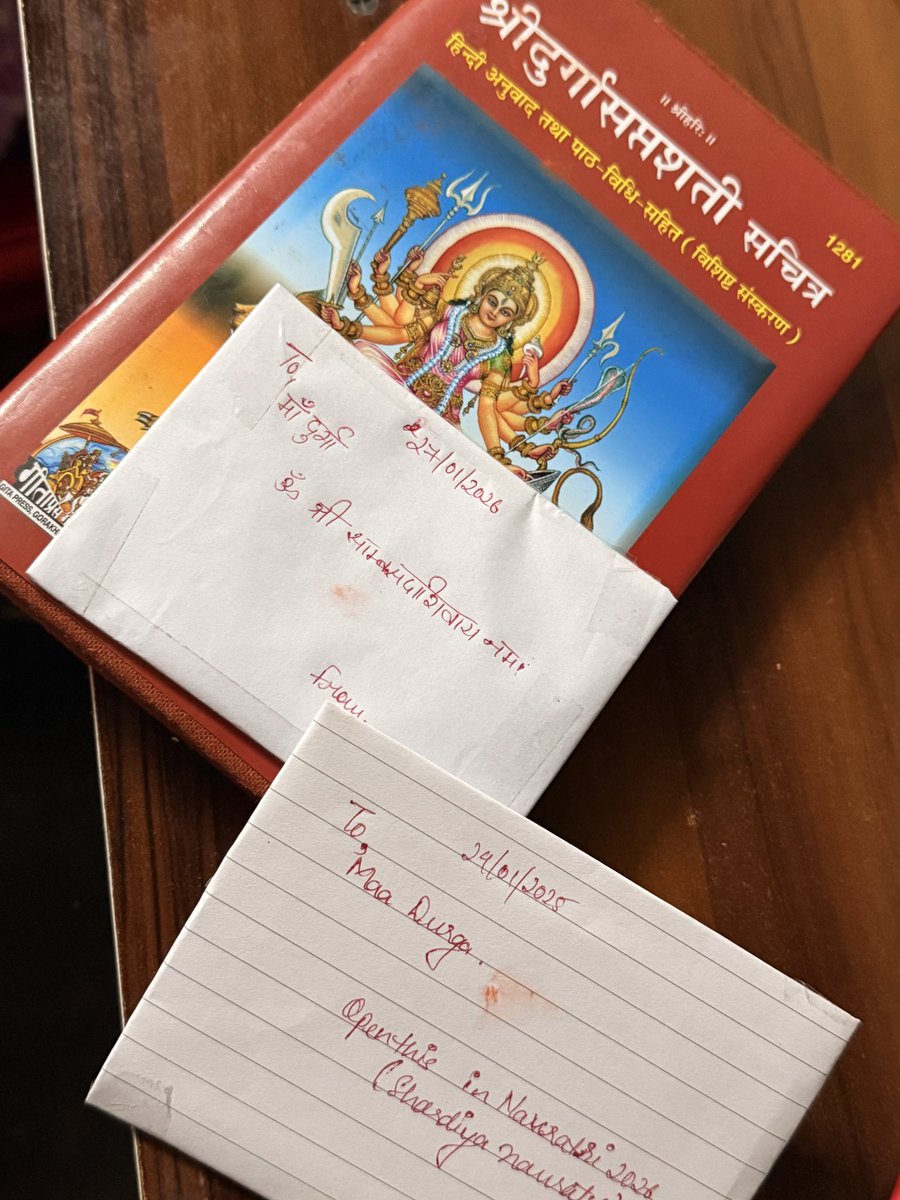 ॥ श्रीहरिः ॥
1281
श्रीदुर्गासप्तशती सचित्र
हिन्दी अनुवाद तथा पाठ-विधि-सहित ( विशिष्ट संस्करण )
GITA PRESS, GORAKH
To,
27/01/2026
माँ दुर्गा
ॐ श्री नमः
From,
To,
24/01/2025
Maa Durga.
Open this in Navratri 2026
(Shardiya navratri